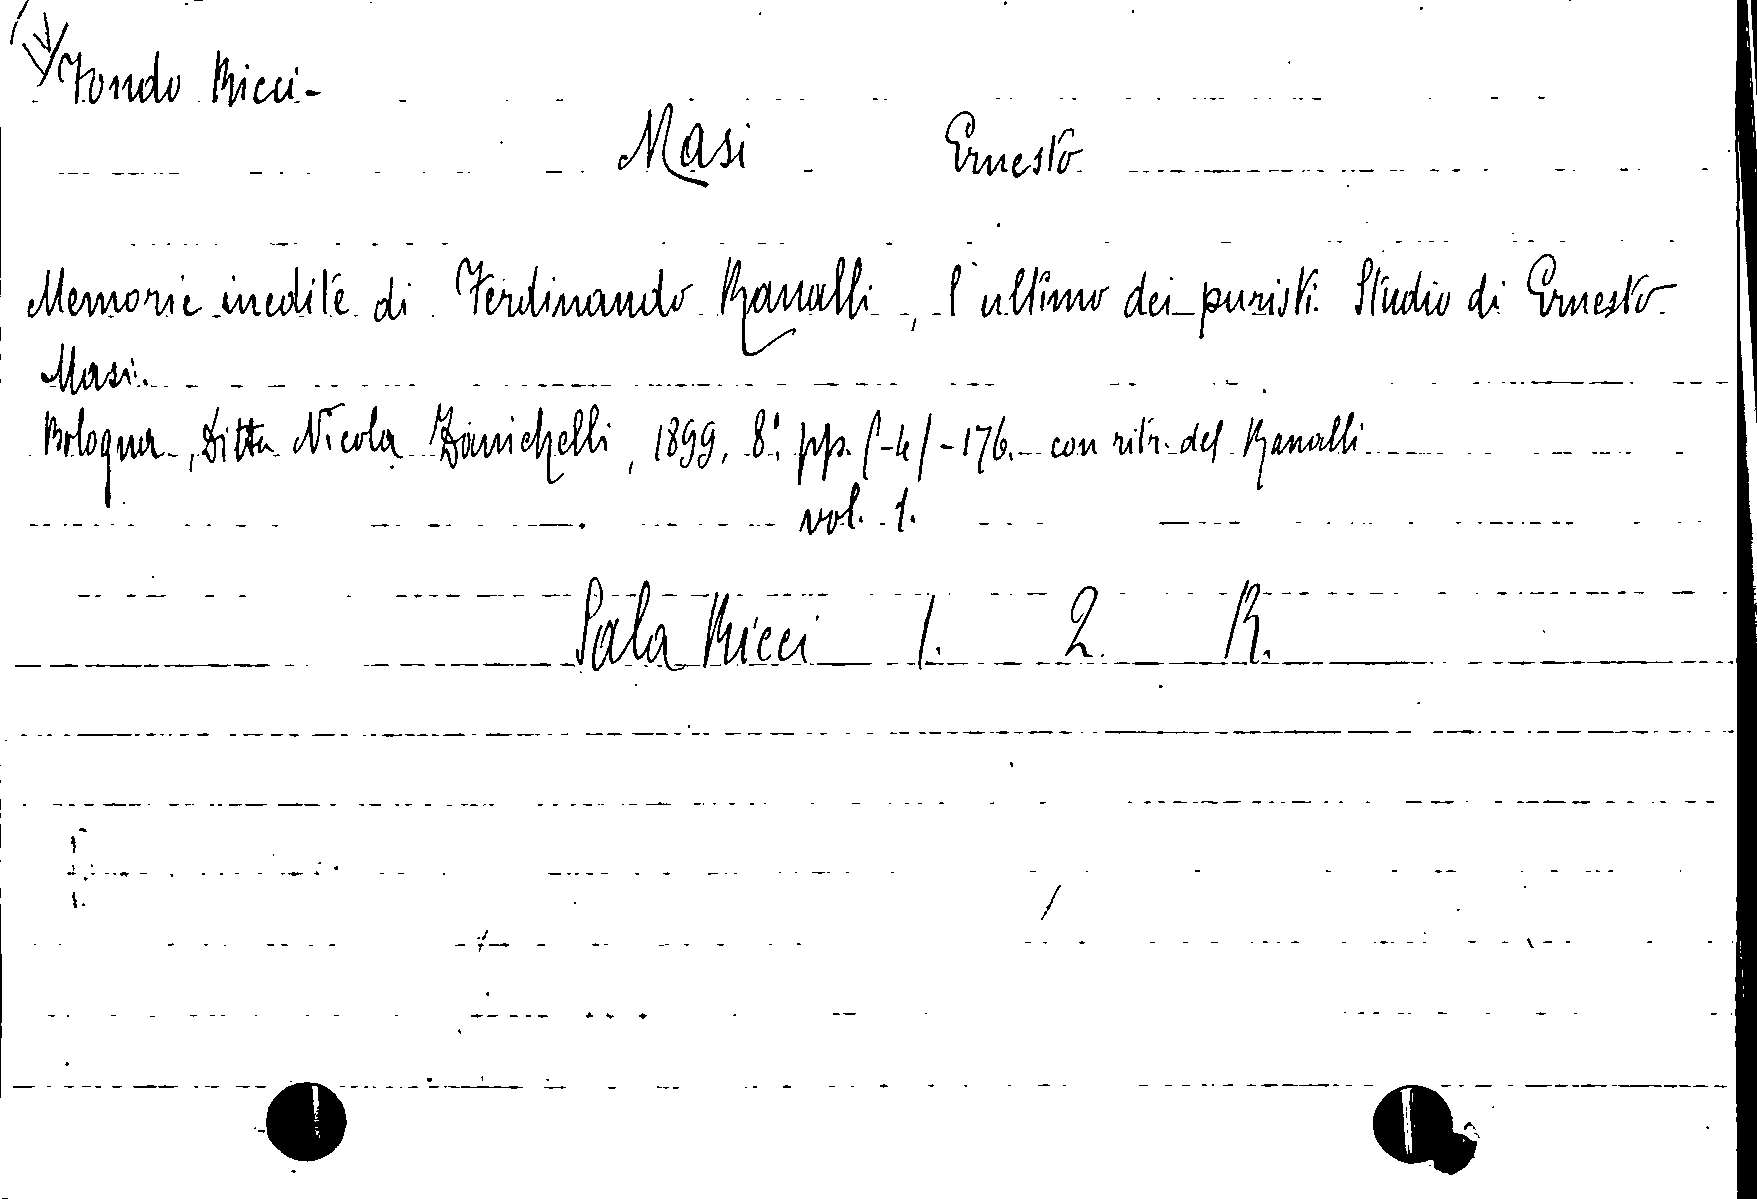 IV
Fondo Ricci-
Masi Ernesto
Memorie inedite di Ferdinando Ranalli, l'ultimo dei puristi. Studio di Ernesto
Masi.
Bologna, Ditta Nicola Zanichelli, 1899, 8.° pp. /-4/-176. con ritr. del Ranalli
vol. 1.
Sala Ricci 1. 2. R.